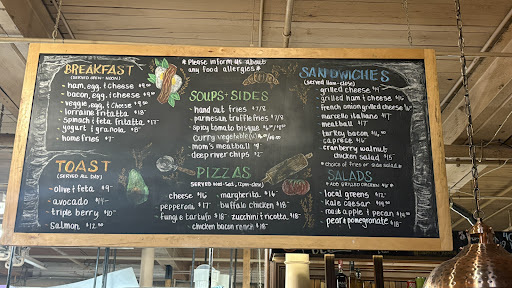 BREAKFAST
(SERVED 8AM - NOON)
- ham, egg, & cheese $9 -
- bacon, egg, & cheese $9 -
- veggie, egg, & cheese $9 -
- lorraine fritatta $18 -
- spinach & feta fritatta $17 -
- yogurt & granola $8 -
- home fries $7 -
TOAST
(SERVED ALL DAY)
- olive & feta $9 -
- avocado $14 -
- triple berry $10 -
- Salmon $12.00
* Please inform us about
any food allergies *
SOUPS + SIDES
- hand cut fries $7/8
- parmesan truffle fries $7/8
- spicy tomato bisque
- curry vegetable
- mom's meatball
- deep river chips $2-
PIZZAS
(SERVED wed-Sat, 12pm-close)
cheese $16 - margherita $16 -
pepperoni $17 - buffalo chicken $18 -
- fungi e tartufo $18 - zucchini & ricotta $18 -
- chicken bacon ranch $18 -
SANDWICHES
(SERVED 11am-close)
- grilled cheese $14
- grilled ham & cheese $16
- french onion grilled cheese
- marcello italiano $17
- meatball $17
- turkey bacon $16
- caprese $16
- cranberry walnut
chicken salad $15
* choice of fries or side salad *
SALADS
* ADD GRILLED CHICKEN $8 *
- local greens $12 -
- kale caesar $14 -
- roast apple & pecan $14.00
- pear & pomegranate $18 -